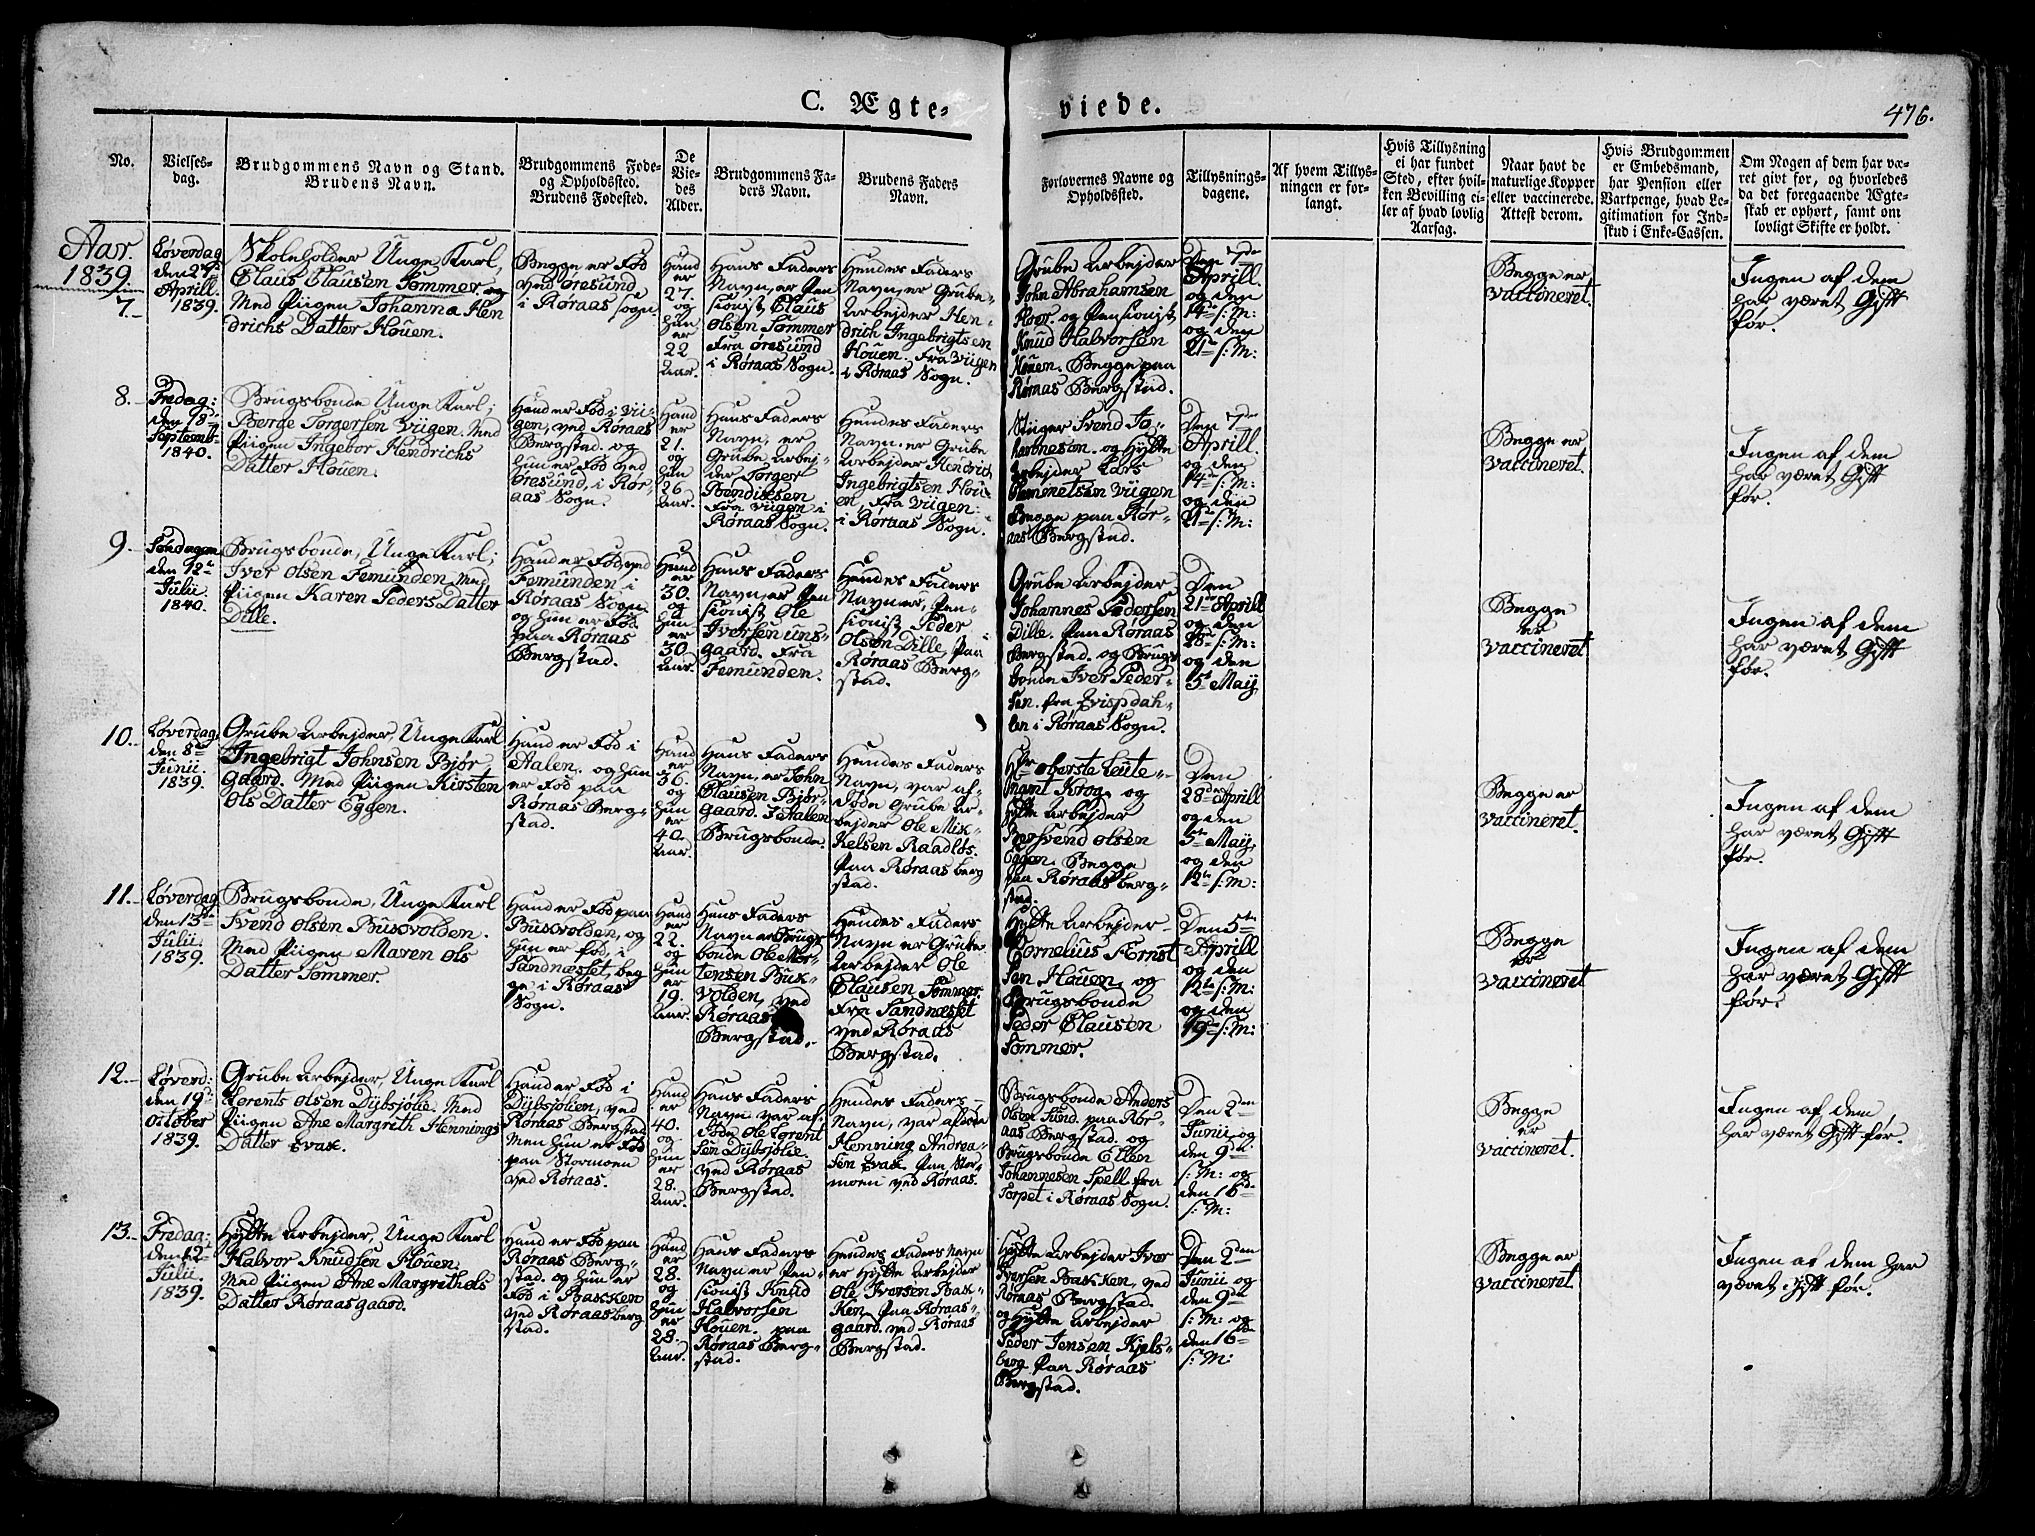 C. Ægte-
viede.
476.
No.
Vielses-
dag.
Brudgommens Navn og Stand.
Brudens Navn.
Brudgommens Føde-
og Opholdssted.
Brudens Fødested.
De
Vie-
des
Alder.
Brudgommens Fa-
ders Navn.
Brudens Faders
Navn.
Forlovernes Navne og
Opholdssted.
Tillysnings-
dagene.
Af hvem Tillys-
ningen er for-
langt.
Hvis Tillysning
ei har fundet
Sted, efter hvil-
ken Bevilling el-
ler af hvad lovlig
Aarsag.
Naar havt de
naturlige Kopper
eller vaccinerede.
Attest derom.
Hvis Brudgommen
er Embedsmand,
har Pension eller
Vartpenge, hvad Le-
gitimation for Ind-
skud i Enke-Cassen.
Om Nogen af dem har væ-
ret givt før, og hvorledes
da det foregaaende Ægte-
skab er ophørt, samt om
lovligt Skifte er holdt.
Aar.
1839
7.
Løverdag
den 27de
Aprill.
1839.
Skoleholder Unge Karl,
Claus Clausen Sommer.
Med Piigen Johanna Hen
drichs Datter Houen.
Begge er Fød
ved Øresund
i Røraas Sogn.
Hand
er
27.
og
hun
er
22
Aar.
Hans Faders
Navn, er Pen
sionist Claus
Olsen Sommer
Fra Øresund
i Røraas Sogn.
Hendes Faders
Navn, er Grube-
Arbejder Hen-
drich Ingebrigtsen
Houen. Fra Viigen
i Røraas Sogn.
Grube Arbejder
John Abrahamsen
Floor. og Pensionist
Knud Halvorsen
Houen. Begge paa
Røraas Bergstad.
Den 7de
Aprill.
og den
14de s: M:
og den
21de s: M:
Begge er
vaccineret.
Ingen af dem
har været Gift
før.
8.
Fredag:
den 18de
Septemb:
1840.
Brugsbonde Unge Karl;
Berge Torgersen Viigen. Med
Piigen Ingebor Hendrichs
Datter Houen.
Hand er Fød i Vii-
gen, ved Røraas
Bergstad. og
hun er Fød ved
Øresund, i Rør-
aas Sogn.
Hand
er
21.
og
hun
26.
Aar.
Hans Faders
Navn, er
Grube Arbej-
der Torger
Bendixsen
Fra Viigen i
Røraas Sogn.
Hendes Faders
Navn, er Grube
Arbejder Hendrich
Ingebrigtsen Hou-
en, Fra Viigen:
i Røraas Sogn.
Stiger Svend Jo-
hannesen, og Hytte
Arbejder Lars
Viigen
Begge paa Rør-
aas Bergstad.
Den 7de
Aprill.
og den
14de s: M:
og den
21de s: M:
Begge er
vaccineret.
Ingen af dem
har været Gift
før.
9.
Søndagen
den 12te
Julii.
1840.
Brugsbonde, Unge Karl;
Iver Olsen Femunden, Med
Piigen Karen Peders Datter
Dille.
Hand er Fød, ved
Femunden i
Røraas Sogn.
og hun er Fød
paa Røraas
Bergstad.
Hand
er
30.
og
hun
er
30.
Aar.
Hans Faders
Navn, er Pen
sionist Ole
Iversen
gaard. Fra
Femunden.
Hendes Faders
Navn er, Pen-
sionist Peder
Olsen Dille, paa
Røraas Berg-
stad.
Grube Arbejder
Johannes Pedersen
Dille. Paa Røraas
Bergstad. og Brugs
bonde Iver Peder-
sen. fra
len i Røraas Sogn.
Den
21de Aprill
og den
28de s: M:
og den
5te Maij
Begge
er
vaccineret
Ingen af dem
har været Gift
før.
10.
Løverdag,
den 8de
Junii.
1839.
Grube Arbejder, Unge Karl
Ingebrigt Johnsen Bjør
gaard. Med Piigen Kirsten
Ols Datter Eggen.
Hand er Fød i
Aalen. og hun
er Fød paa
Røraas Berg-
stad.
Hand
er
36.
og
hun
er
40.
Aar.
Hans Faders
Navn, er John
Clausen Bjør-
gaard. I Aalen
Brugsbonde.
Hendes Faders
Navn, var af-
døde Grube Ar-
bejder Ole Mik-
kelsen Raadløs.
Paa Røraas berg
stad.
Hr oberste Leute-
nant Krog, og
Hytte Arbejder
Svend Olsen
Eggen, Begge
paa Røraas berg-
stad.
Den
28de Aprill
og den
5te Maij,
og den
12te s: M:
Begge er
vaccineret.
Ingen af dem
har været Gift
før.
11.
Løverdag,
den 13de
Julii.
1839.
Brugsbonde, Unge Karl
Svend Olsen Buxvolden.
Med Piigen Maren Ols
Datter Sommer.
Hand er Fød paa
Buxvolden, og
hun er fød, i
Sandnæsset, beg
ge i Røraas
Sogn.
Hand
er
22.
og
hun
er
19.
Aar.
Hans Faders
Navn er Brugs
bonde Ole Mor-
tensen Bux-
volden, ved
Røraas
Bergstad.
Hendes Faders
Navn er Grube
Arbejder Ole
Clausen Sommer
Fra Sandnæsset
ved Røraas
Bergstad.
Hytte Arbejder
Cornelius Ernst
sen Houen, og
Brugsbonde
Peder Clausen
Sommer.
Den 5te
Aprill
og den
12te s: M:
og den
19de s: M:
Begge
er
vaccineret
Ingen af dem
har været Gift
før.
12.
Løverd:
den 19de
October
1839.
Grube Arbejder, Unge Karl
Lorents Olsen Dijbsjølie. Med
Piigen Ane Margrith Hennings
Datter Evax.
Hand er Fød i
Dijbsjølien, ved
Røraas Bergstad
Men hun er Fød
paa Stormoen
ved Røraas.
Hand
er
40.
og
hun
er
28.
Aar.
Hans Faders
Navn var af
døde Ole Lorent
sen Dijbsjølie.
ved Røraas
Bergstad.
Hendes Faders
Navn, var afdøde
Henning Andrea-
sen Evax. Paa Stor-
moen ved Røraas.
Brugsbonde Anders
Olsen Sund. paa Rør-
aas Bergstad. og
Brugsbonde Ellen
Johannesen Spell. fra
Torpet i Røraas Sogn.
Den 2den
Junii og
den 9de
s: M: og
den 16de
s: M:
Begge
er
vaccineret.
Ingen af dem
har været Gift før.
13.
Fredag:
den 12te
Julii.
1839.
Hytte Arbejder, Unge Karl
Halvor Knudsen Houen
Med Piigen Ane Margrethe Ols
Datter Røraasgaard.
Hand er Fød paa
Røraas Berg-
stad. og hun er
Fød i Baxken
ved Røraas berg
stad.
Hand
er
28.
og
hun
er
28.
Aar.
Hans Faders
Navn er Pen-
sionist Knud
Halvorsen
Houen. paa
Røraas Berg-
stad.
Hendes Faders Navn
er Hytte Arbejder
Ole Iversen Bax-
ken, paa Røraas-
gaard. ved Røraas
Bergstad.
Hytte Arbejder Iver
Iversen Baxken, ved
Røraas Bergstad.
og Hytte Arbejder
Peder Jensen Kjels-
berg. Paa Røraas
Bergstad.
Den 2den
Junii og
den 9de
s: M: og
den 16de
s: M:
Begge er
vaccineret.
Ingen af dem har
været gift før.